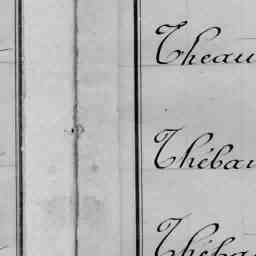 Theau
Thébau
Théba